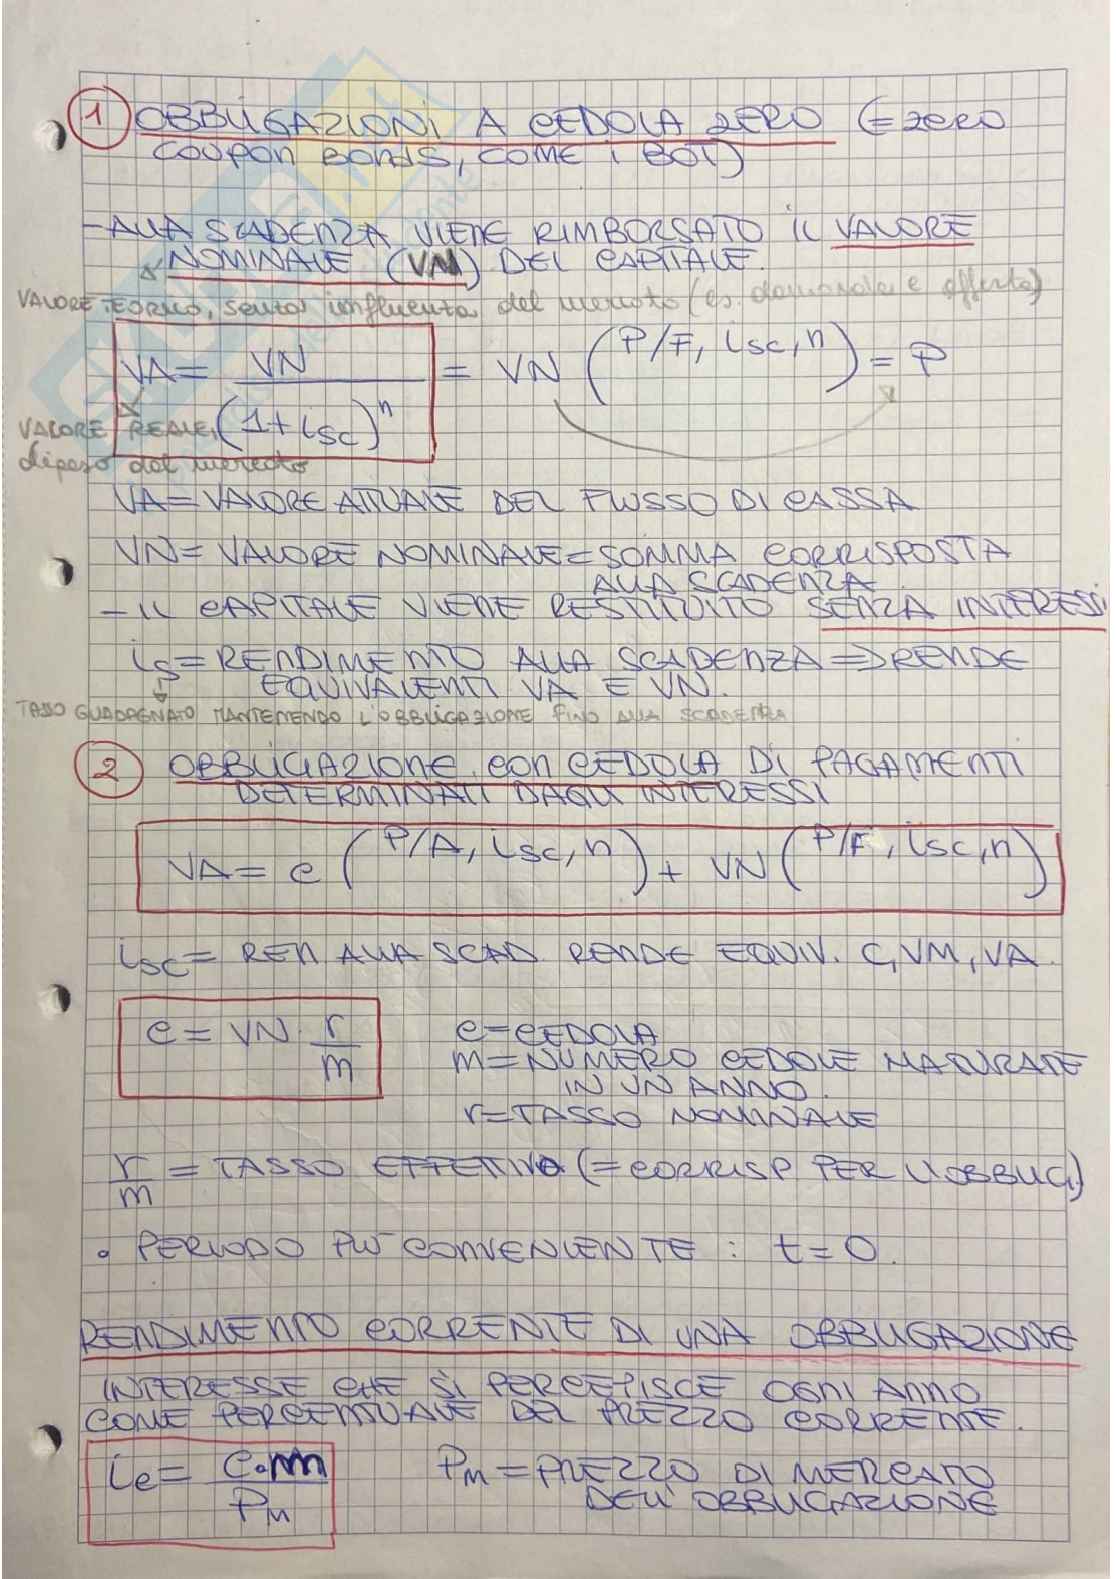 1 OBBLIGAZIONI A CEDOLA ZERO (= ZERO
COUPON BONDS, COME I BOT)
- ALLA SCADENZA VIENE RIMBORSATO IL VALORE
NOMINALE (VN) DEL CAPITALE.
VALORE TEORICO, senza influenza del mercato (es. domanda e offerta)
VA = VN / (1 + isc)^n = VN (P/F, isc, n) = P
VALORE REALE,
dipeso dal mercato
VA = VALORE ATTUALE DEL FLUSSO DI CASSA
VN = VALORE NOMINALE = SOMMA CORRISPOSTA
ALLA SCADENZA
- IL CAPITALE VIENE RESTITUITO SENZA INTERESSI
is = RENDIMENTO ALLA SCADENZA => RENDE
EQUIVALENTI VA E VN.
TASSO GUADAGNATO MANTENENDO L'OBBLIGAZIONE FINO ALLA SCADENZA
2 OBBLIGAZIONE CON CEDOLA DI PAGAMENTI
DETERMINATI DAGLI INTERESSI
VA = C (P/A, isc, n) + VN (P/F, isc, n)
isc = REN ALLA SCAD RENDE EQUIV. C, VM, VA.
C = VN · r/m
C = CEDOLA
m = NUMERO CEDOLE MATURATE
IN UN ANNO.
r = TASSO NOMINALE
r/m = TASSO EFFETTIVO (= CORRISP PER L'OBBLIG.)
• PERIODO PIÙ CONVENIENTE : t = 0.
RENDIMENTO CORRENTE DI UNA OBBLIGAZIONE
INTERESSE CHE SI PERCEPISCE OGNI ANNO
COME PERCENTUALE DEL PREZZO CORRENTE.
ic = C·m / PM
PM = PREZZO DI MERCATO
DELL'OBBLIGAZIONE